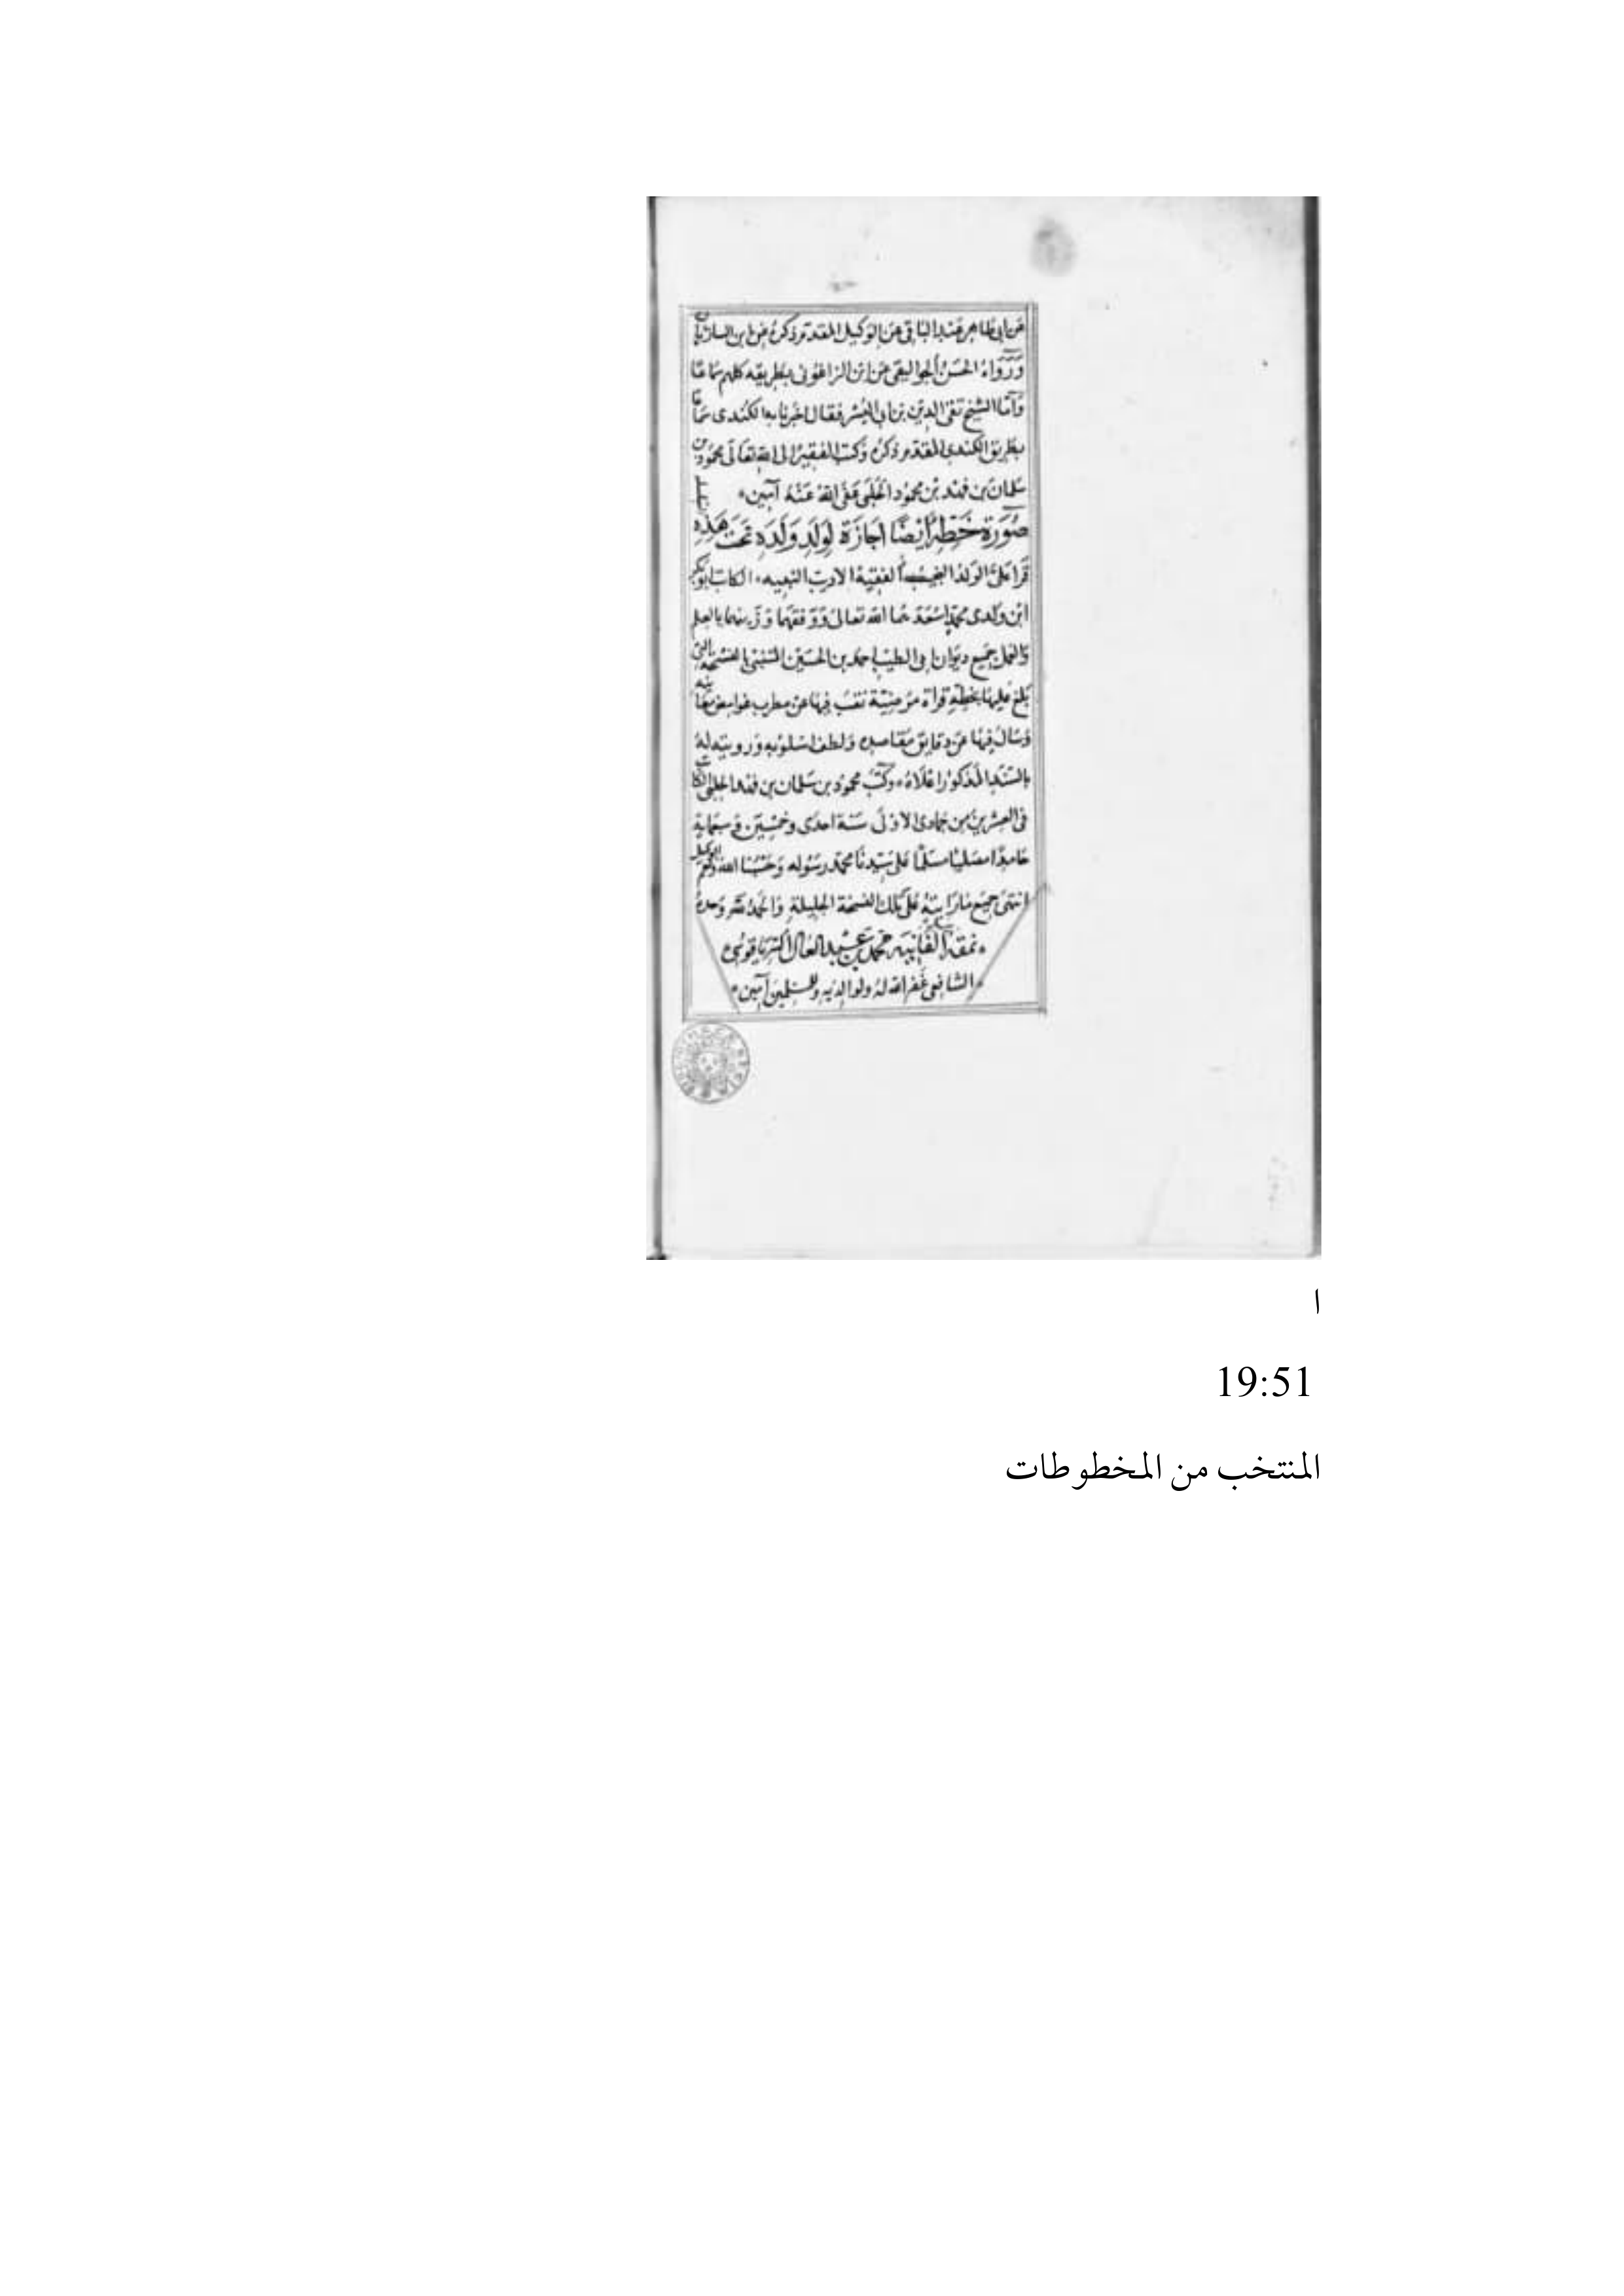 عن ابي طاهر عبد الباقي عن الوكيل المقدم ذكره عن ابن الساربان
ورواه الحسن الجواليقي عن ابن الزاغوني بطريقه كلهم سماعا
وأما الشيخ تقي الدين بن ابي اليسر فقال اخبرنا به الكندي سماعا
بطريق الكندي المقدم ذكره وكتب الفقير الى الله تعالى محمود بن
سلمان بن فهد بن محمود الحلبي عفى الله عنه آمين
صورة خطه أيضا اجازة لولد ولده تحت هذه
قرأ على الولد النجيب الفقيه الاديب النبيه الكاتب ابو بكر
ابن ولدى محمد اسعدهما الله تعالى ووفقهما وزينهما بالعلم
والعمل جميع ديوان ابى الطيب احمد بن الحسين المتنبى بالنسخة التى
بلغ عليها بخطه قراة مرضية نقب فيها عن غوامض معانيه
وسال فيها عن دقايق مقاصده ولطف اسلوبه ورويته له
بالسند المذكور اعلاه وكتب محمود بن سلمان بن فهد الحلبي الكاتب
في العشرين من جمادى الاولى سنة احدى وخمسين وسبعماية
حامدا مصليا مسلما على سيدنا محمد رسوله وحسبنا الله ونعم الوكيل
انتهى جميع ما رايته على تلك النسخة الجليلة والحمد لله وحده
نمقه الفانيه محمد بن عبد العال السرياقوسي
الشافعي غفر الله له ولوالديه وللمسلمين آمين
ا
19:51
المنتخب من المخطوطات